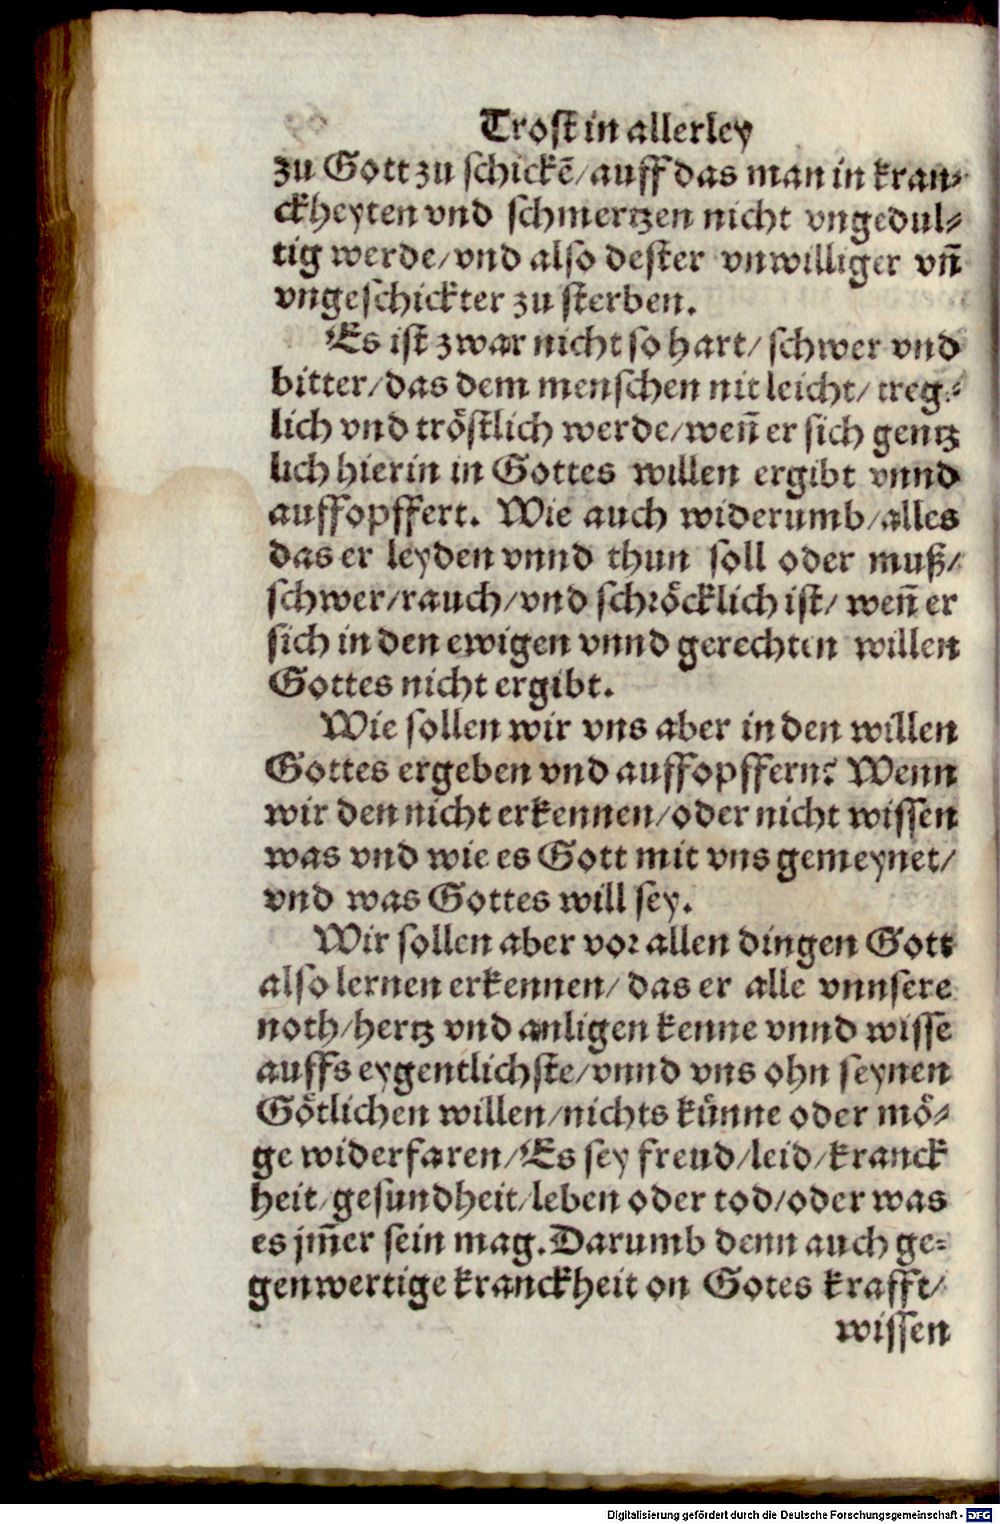 Trost in allerley
zu Gott zu schickẽ/auff das man in kran⸗
ckheyten vnd schmertzen nicht vngedul⸗
tig werde/vnd also dester vnwilliger vñ
vngeschickter zu sterben.
Es ist zwar nicht so hart/ schwer vnd
bitter/das dem menschen nit leicht/ treg⸗
lich vnd tröstlich werde/weñ er sich gentz
lich hierin in Gottes willen ergibt vnnd
auffopffert. Wie auch widerumb/alles
das er leyden vnnd thun soll oder muß/
schwer/rauch/vnd schröcklich ist/ weñ er
sich in den ewigen vnnd gerechten willen
Gottes nicht ergibt.
Wie sollen wir vns aber in den willen
Gottes ergeben vnd auffopffern? Wenn
wir den nicht erkennen/oder nicht wissen
was vnd wie es Gott mit vns gemeynet/
vnd was Gottes will sey.
Wir sollen aber vor allen dingen Gott
also lernen erkennen/ das er alle vnnsere
noth/hertz vnd anligen kenne vnnd wisse
auffs eygentlichste/vnnd vns ohn seynen
Götlichen willen/nichts künne oder mö⸗
ge widerfaren/Es sey freud/leid/kranck
heit/gesundheit/leben oder tod/oder was
es jm̃er sein mag.Darumb denn auch ge⸗
genwertige kranckheit on Gotes krafft/
wissen
Digitalisierung gefördert durch die Deutsche Forschungsgemeinschaft - DFG